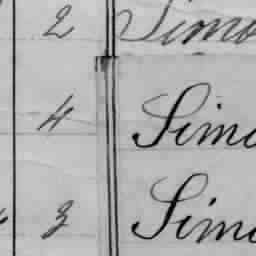 2 Simo
4 Simo
3 Simo